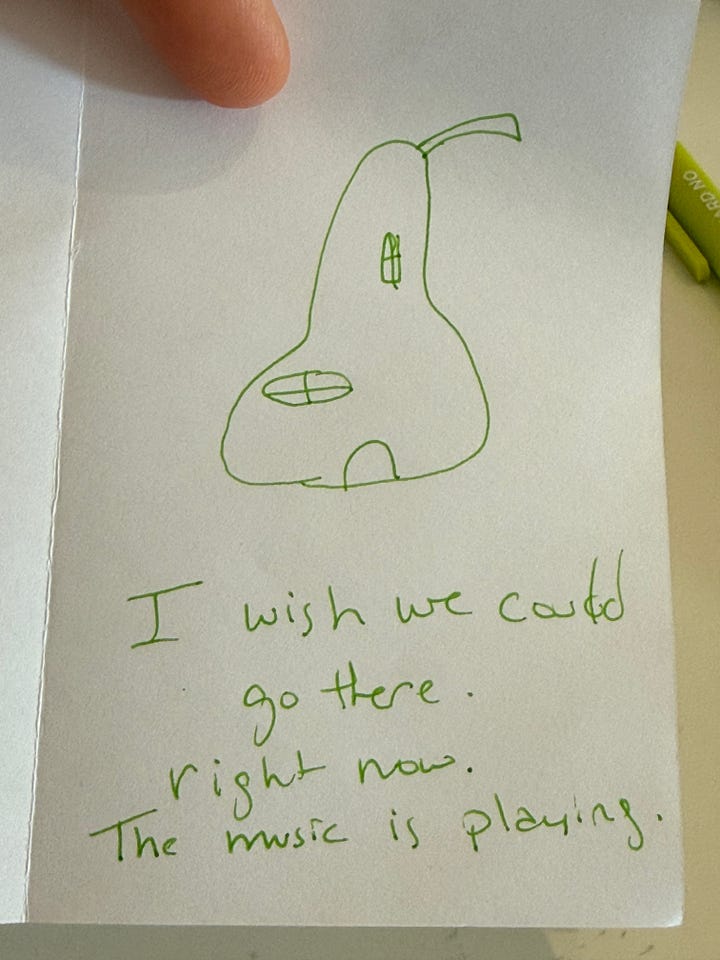 I wish we could
go there.
right now.
The music is playing.
RD NO